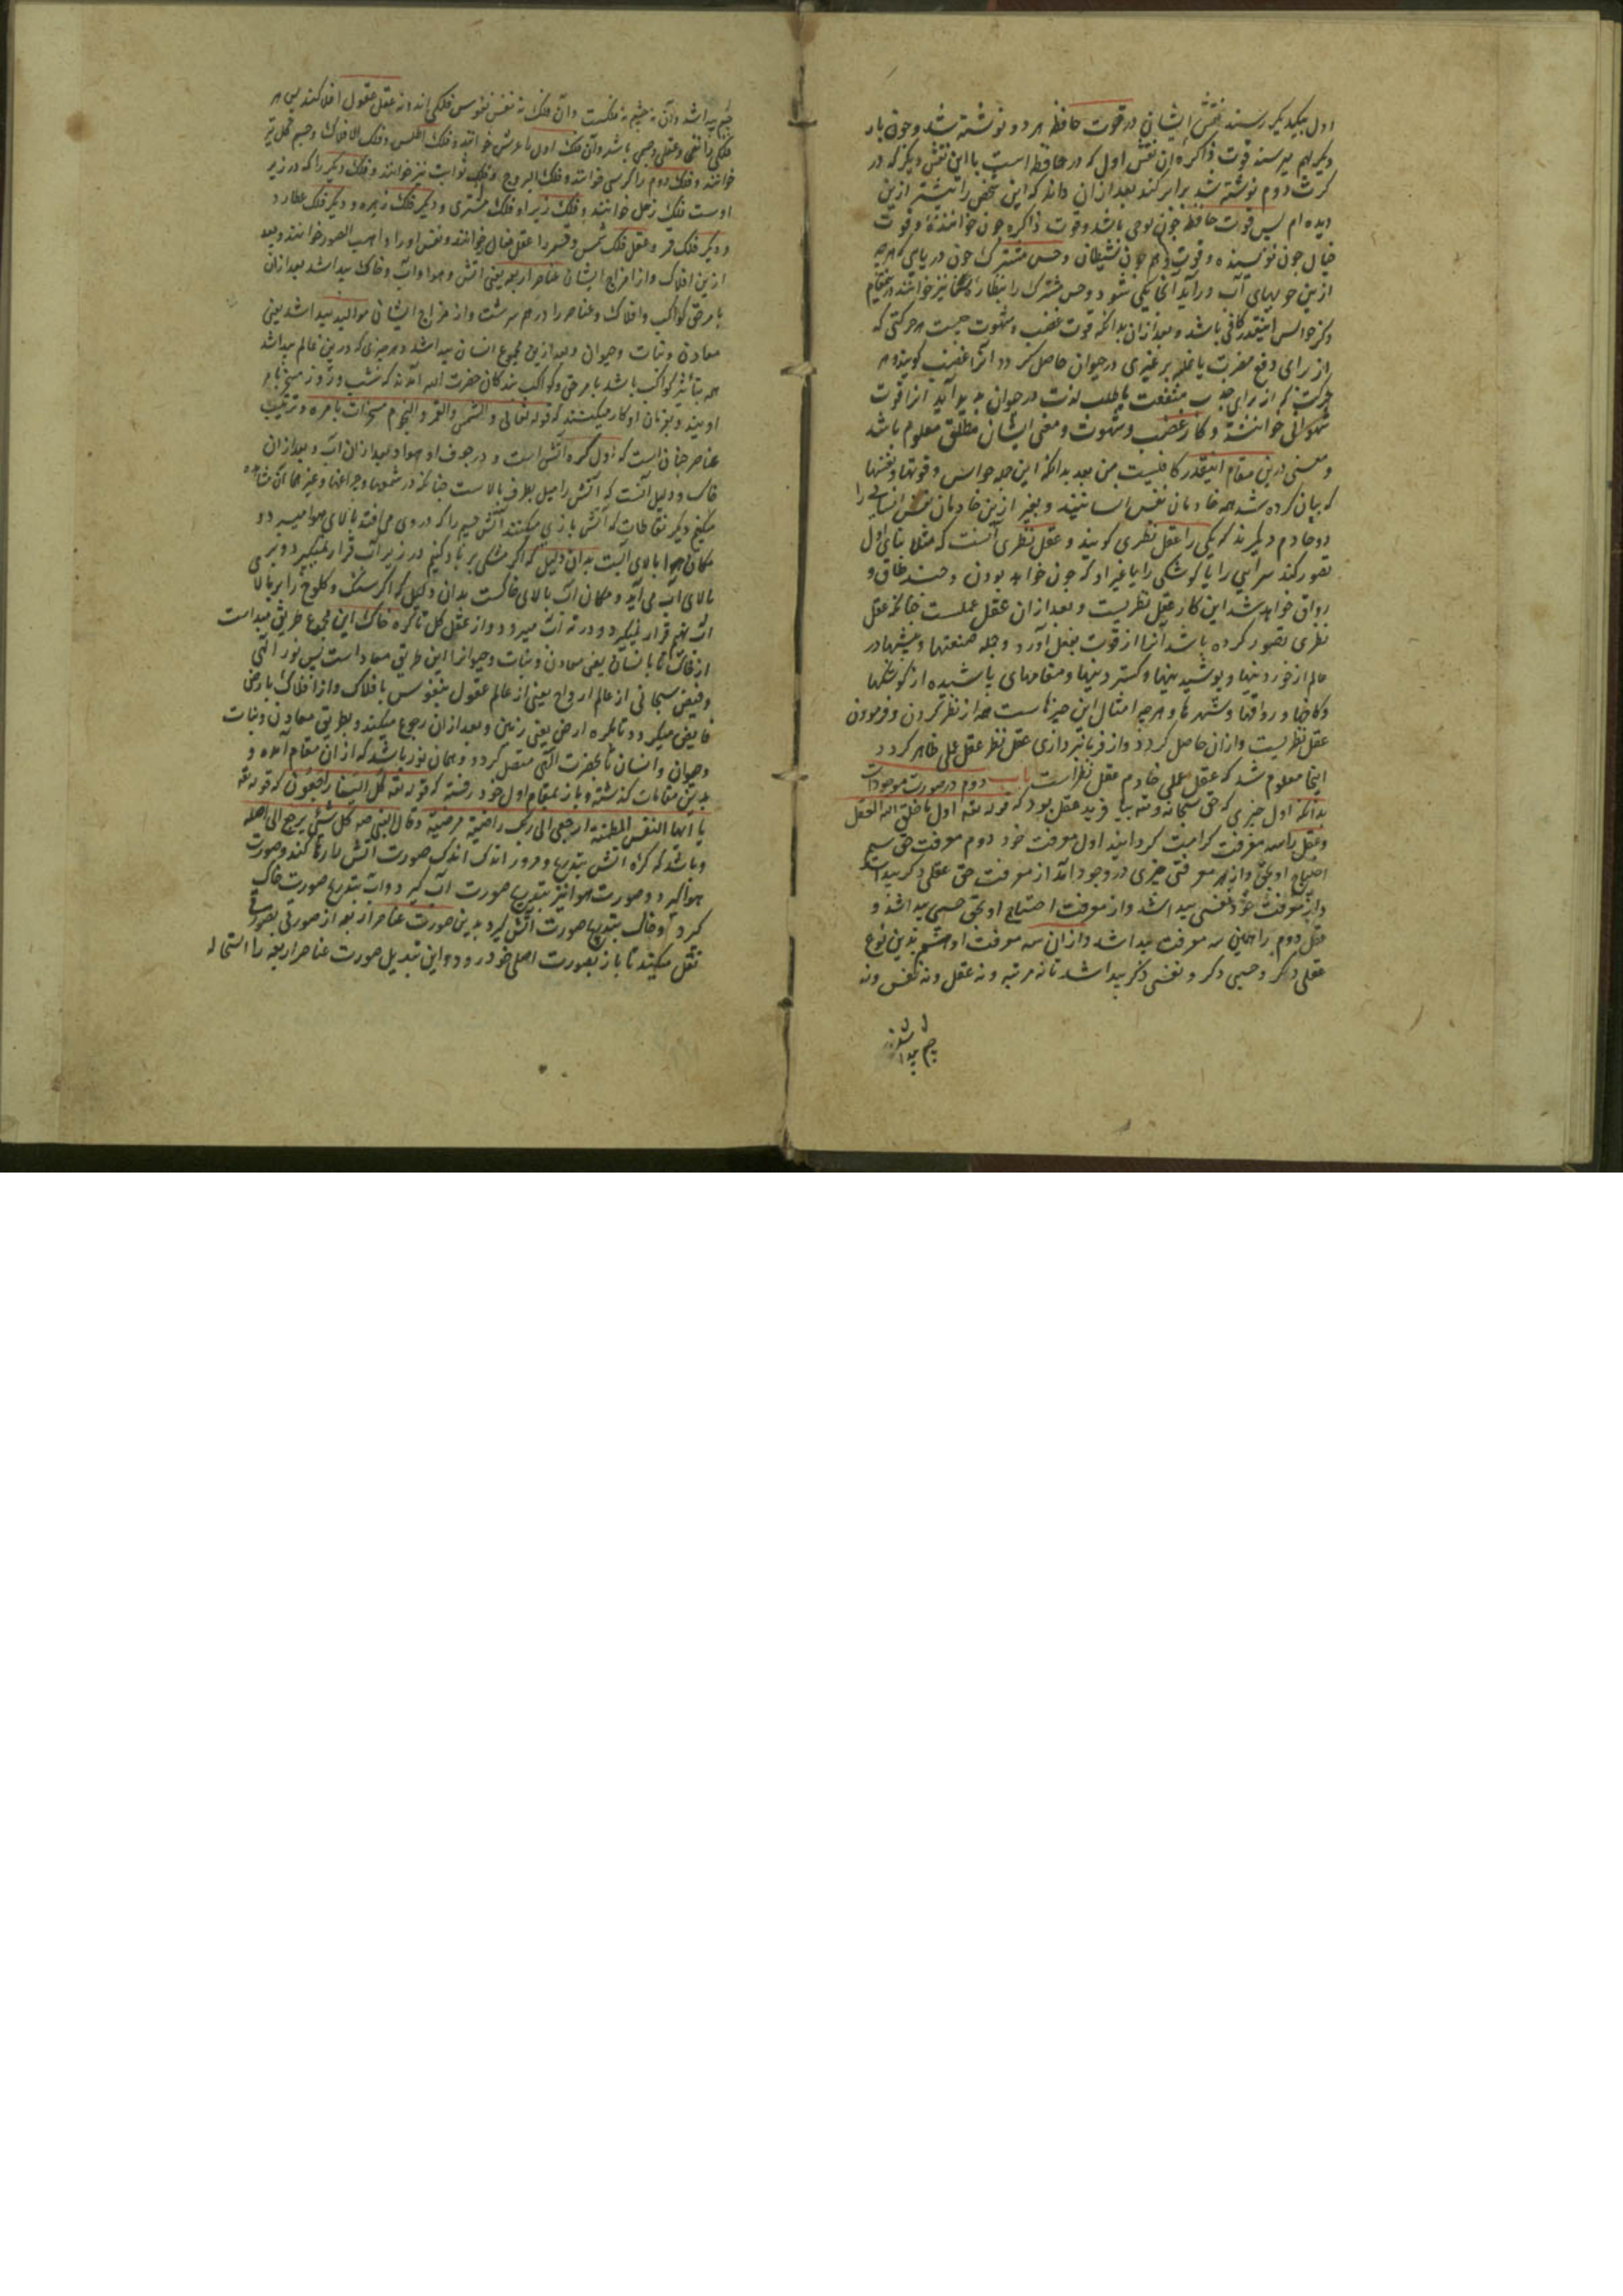 اول بیکدیگر رسند نقش ایشان در قوت حافظه هر دو نوشته شد و چون بار
دیگر بهم برسند قوت ذاکره آن نقش اول که در حافظه است با این نقش دیگر که در
کرت دوم نوشته شد برابر کند بعد از آن داند که این شخص را پیشتر ازین
دیده ام پس قوت حافظه چون لوحی باشد و قوت ذاکره چون خواننده و قوت
خیال چون نویسنده و قوت وهم چون شیطان و حس مشترک چون دریای که هرچه
ازین جویهای آب در آید آنجا یکی شود و حس مشترک را بنطاسیا نیز خوانند در مقام
ذکر حواس اینقدر کافی باشد و بعد از آن بدانکه قوت غضب و شهوت چیست هر حرکتی که
از برای دفع مضرت یا غلبه بر غیری در حیوان حاصل گردد آنرا غضب گویند و هر
حرکت که از برای جذب منفعت یا طلب لذت در حیوان پدید آید آنرا قوت
شهوانی خوانند و کار غضب و شهوت و معنی ایشان مطلق معلوم باشد
و معنی درین مقام اینقدر کافیست من بعد بدانکه این جمله حواس و قوتها و نفسها
که بیان کرده شد همه خادمان نفس انسانیند و بغیر ازین خادمان نفس انسانی را
دو خادم دیگرند که یکی را عقل نظری گویند و عقل نظری آنست که مثلا بنای اول
تصور کند سرایی را یا کوشکی را یا غیر او که چون خواهد بودن و چند طاق و
رواق خواهد شد این کار عقل نظریست و بعد از آن عقل عملیست چنانکه عقل
نظری تصور کرده باشد آنرا از قوت بفعل آورد و جمله صنعتها و پیشها در
عالم از خوردنیها و پوشیدنیها و گستردنیها و مقامهای باشیده از کوشکها
و کاخها و رواقها و شهرها و هرچه امثال این چیزهاست همه از نظر کردن و فرمودن
عقل نظریست و از آن حاصل گردد و از فرمانبرداری عقل نظر عقل عملی ظاهر گردد
اینجا معلوم شد که عقل عملی خادم عقل نظر است باب دوم در صورت موجودات
بدانکه اول چیزی که حق سبحانه و تعه بیافرید عقل بود که قوله تعه اول ما خلق الله العقل
و عقل را سه معرفت کرامت گردانید اول معرفت خود دوم معرفت حق سیم
احتیاج او بحق و از هر معرفتی چیزی در وجود آمد از معرفت حق عقلی دیگر پیدا شد
و از معرفت خود نفسی پیدا شد و از معرفت احتیاج او بحق جسمی پیدا شد و
عقل دوم را همین سه معرفت پیدا شد و از آن سه معرفت او هم بدین نوع
عقلی دگر و جسمی دگر و نفسی دگر پیدا شد تا نه مرتبه و نه عقل و نه نفس و نه
جسم پیدا شد
جسم پیدا شد و آن نه جسم نه فلکست و آن فلک نه نفس نفوس فلکی اند و نه عقل عقول افلاکند پس هر
فلکی را نفسی و عقلی و جسمی باشد و آن فلک اول را عرش خوانند و فلک اطلس و فلک الافلاک و جسم کل نیز
خوانند و فلک دوم را کرسی خوانند و فلک البروج و فلک ثوابت نیز خوانند و فلک دیگر را که در زیر
اوست فلک زحل خوانند و فلک زیر او فلک مشتری و دیگر فلک زهره و دیگر فلک عطارد
و دیگر فلک قمر و عقل فلک شمس و قمر را عقل فعال خوانند و نفس او را واهب الصور خوانند و بعد
ازین افلاک و از امزاج ایشان عناصر اربعه یعنی آتش و هوا و آب و خاک پیدا شد بعد از آن
بامر حق کواکب و افلاک و عناصر را در هم سرشت و از مزاج ایشان موالید پیدا شد یعنی
معادن و نبات و حیوان و بعد ازین مجموع انسان پیدا شد و هر چیزی که درین عالم پیدا شد
همه بتأثیر کواکب باشد بامر حق و کواکب بندگان حضرت الله اند که شب و روز مسخر بامر
اویند و بفرمان او کار میکنند که قوله تعالی و الشمس و القمر و النجوم مسخرات بامره و ترتیب
عناصر چنانست که اول کره آتش است و در جوف او هوا و بعد از آن آب و بعد از آن
خاک و دلیل آنست که آتش را میل بطرف بالاست چنانکه در شمعها و چراغها و غیرها آن مشاهده
میکنیم دیگر نفاطات که آتش بازی میکنند آتش جسم را که در وی می افتد بالای هوا میبرد و
مکان هوا بالای آبست بدان دلیل که اگر مشکی پر باد کنیم در زیر آب قرار نمیگیرد و بر
بالای آب می آید و مکان آب بالای خاکست بدان دلیل که اگر سنگ و کلوخ را بر بالای
آب نهیم قرار نمیگیرد و در ته آب میرود و از عقل کل تا کره خاک این مجموع طریق مبداست
از خاک تا بانسان یعنی معادن و نبات و حیوان این طریق معاد است پس نور الهی
و فیض سبحانی از عالم ارواح یعنی از عالم عقول بنفوس با فلاک و از افلاک بارض
فایض میگردد تا بکره ارض یعنی زمین و بعد از آن رجوع میکند و بطریق معادن و نبات
و حیوان و انسان تا بحضرت الهی متصل گردد و همان نور باشد که از آن مقام آمده و
بدین مقامات گذشته و باز بمقام اول خود رفته که قوله تعه کل الینا راجعون که قوله تعه
یا ایتها النفس المطمئنة ارجعی الی ربک راضیة مرضیة و قال النبی صه کل شئ یرجع الی اصله
و باشد که کره آتش بتدریج و مرور اندک اندک صورت آتش رها کند و صورت
هوا گیرد و صورت هوا نیز بتدریج صورت آب گیرد و آب بتدریج صورت خاک
گردد و خاک بتدریج صورت آتش گیرد بدین صورت عناصر اربعه از صورتی بصورتی
نقل میکند تا باز بصورت اصلی خود رود و این تبدیل صورت عناصر اربعه را استحاله